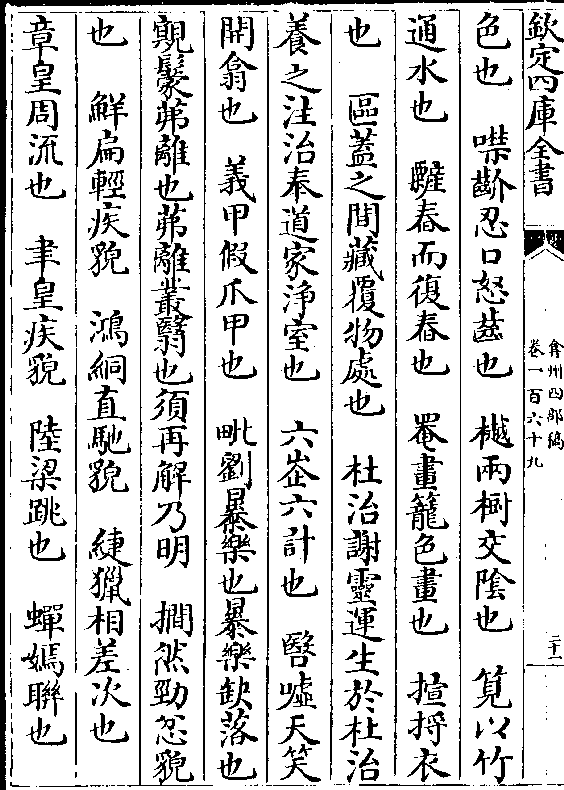 欽定四庫全書
弇州四部稿
卷一百六十九
二十二
色也　噤齘忍口怒齒也　樾兩樹交陰也　筧以竹
通水也　䑔舂而復舂也　罨畫籠色畫也　揎捋衣
也　區蓋之間藏覆物處也　杜治謝靈運生於杜治
養之注治奉道家淨室也　六峜六計也　毉噓天笑
開翕也　義甲假爪甲也　毗劉暴樂也暴樂缺落也
覭髳茀離也茀離叢翳也須再解乃明　撊然勁忿貌
也　鮮扁輕疾貌　鴻絧直馳貌　緁獵相差次也
章皇周流也　聿皇疾貌　陸梁跳也　蟬嫣聯也